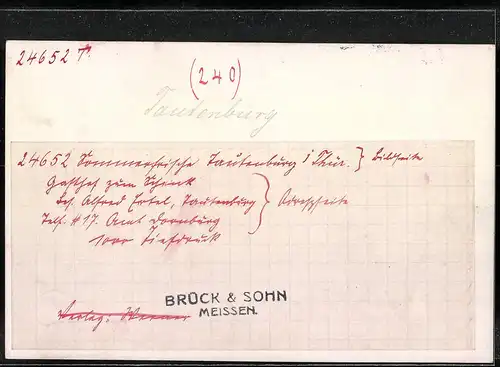 24652 T.
(240)
Tautenburg
24652 Sommerfrische Tautenburg i Thür. } Bildseite
Gasthof zum Schenk
Bes. Alfred Ertel, Tautenburg } Adreßseite
Telf. #17. Amt Dornburg
1000 Tiefdruck
BRÜCK & SOHN
MEISSEN.
Verlag: Werner